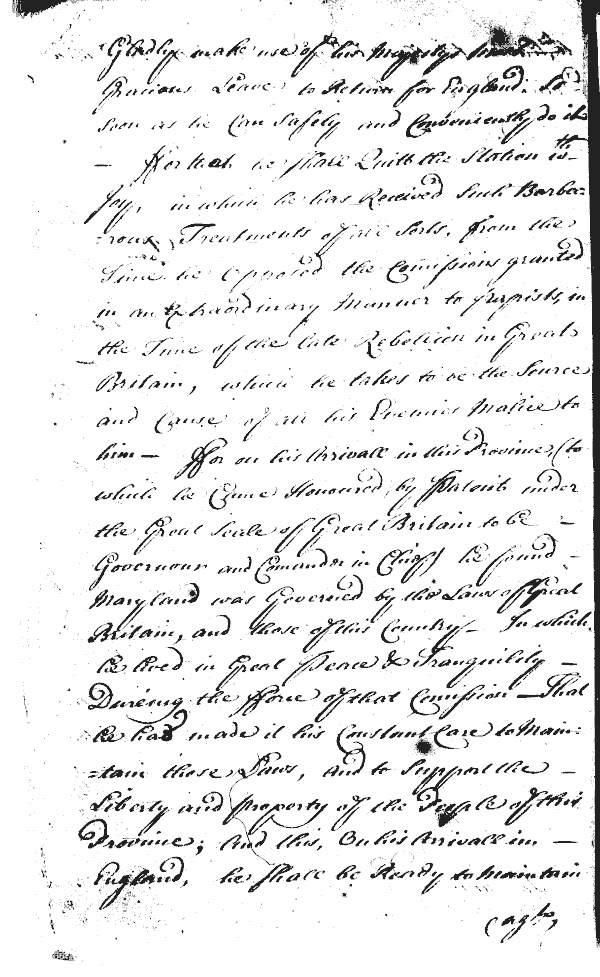 Gladly make use of his Majestys most
Gracious Leave to Return for England. So
soon as he Can Safely and Conveniently do it
— ffor that he shall Quitt the Station with
Joy, in which he has Received Such Barba=
=rous Treatments of all Sorts, from the
Time he Opposed the Comissions granted
in an Extraordinary Manner to papists, in
the Time of the late Rebellion in Great
Britain, which he takes to be the Source
and Cause of all his Enemies Malice to
him — ffor on his Arrivall in this Province, (to
which he Came Honoured by Patent under
the Great Seale of Great Britain to be —
Governour and Comander in Chief) he found —
Maryland was Governed by the Laws of Great
Britain, and those of this Country — In which
he lived in Great Peace & Tranquility —
Dureing the fforce of that Comission — That
he had made it his Constant Care to Main=
=tain those Laws, And to Support the —
Liberty and property of the People of this
Province; And this, On his Arrivall in —
England, he shall be Ready to maintain
(agt.